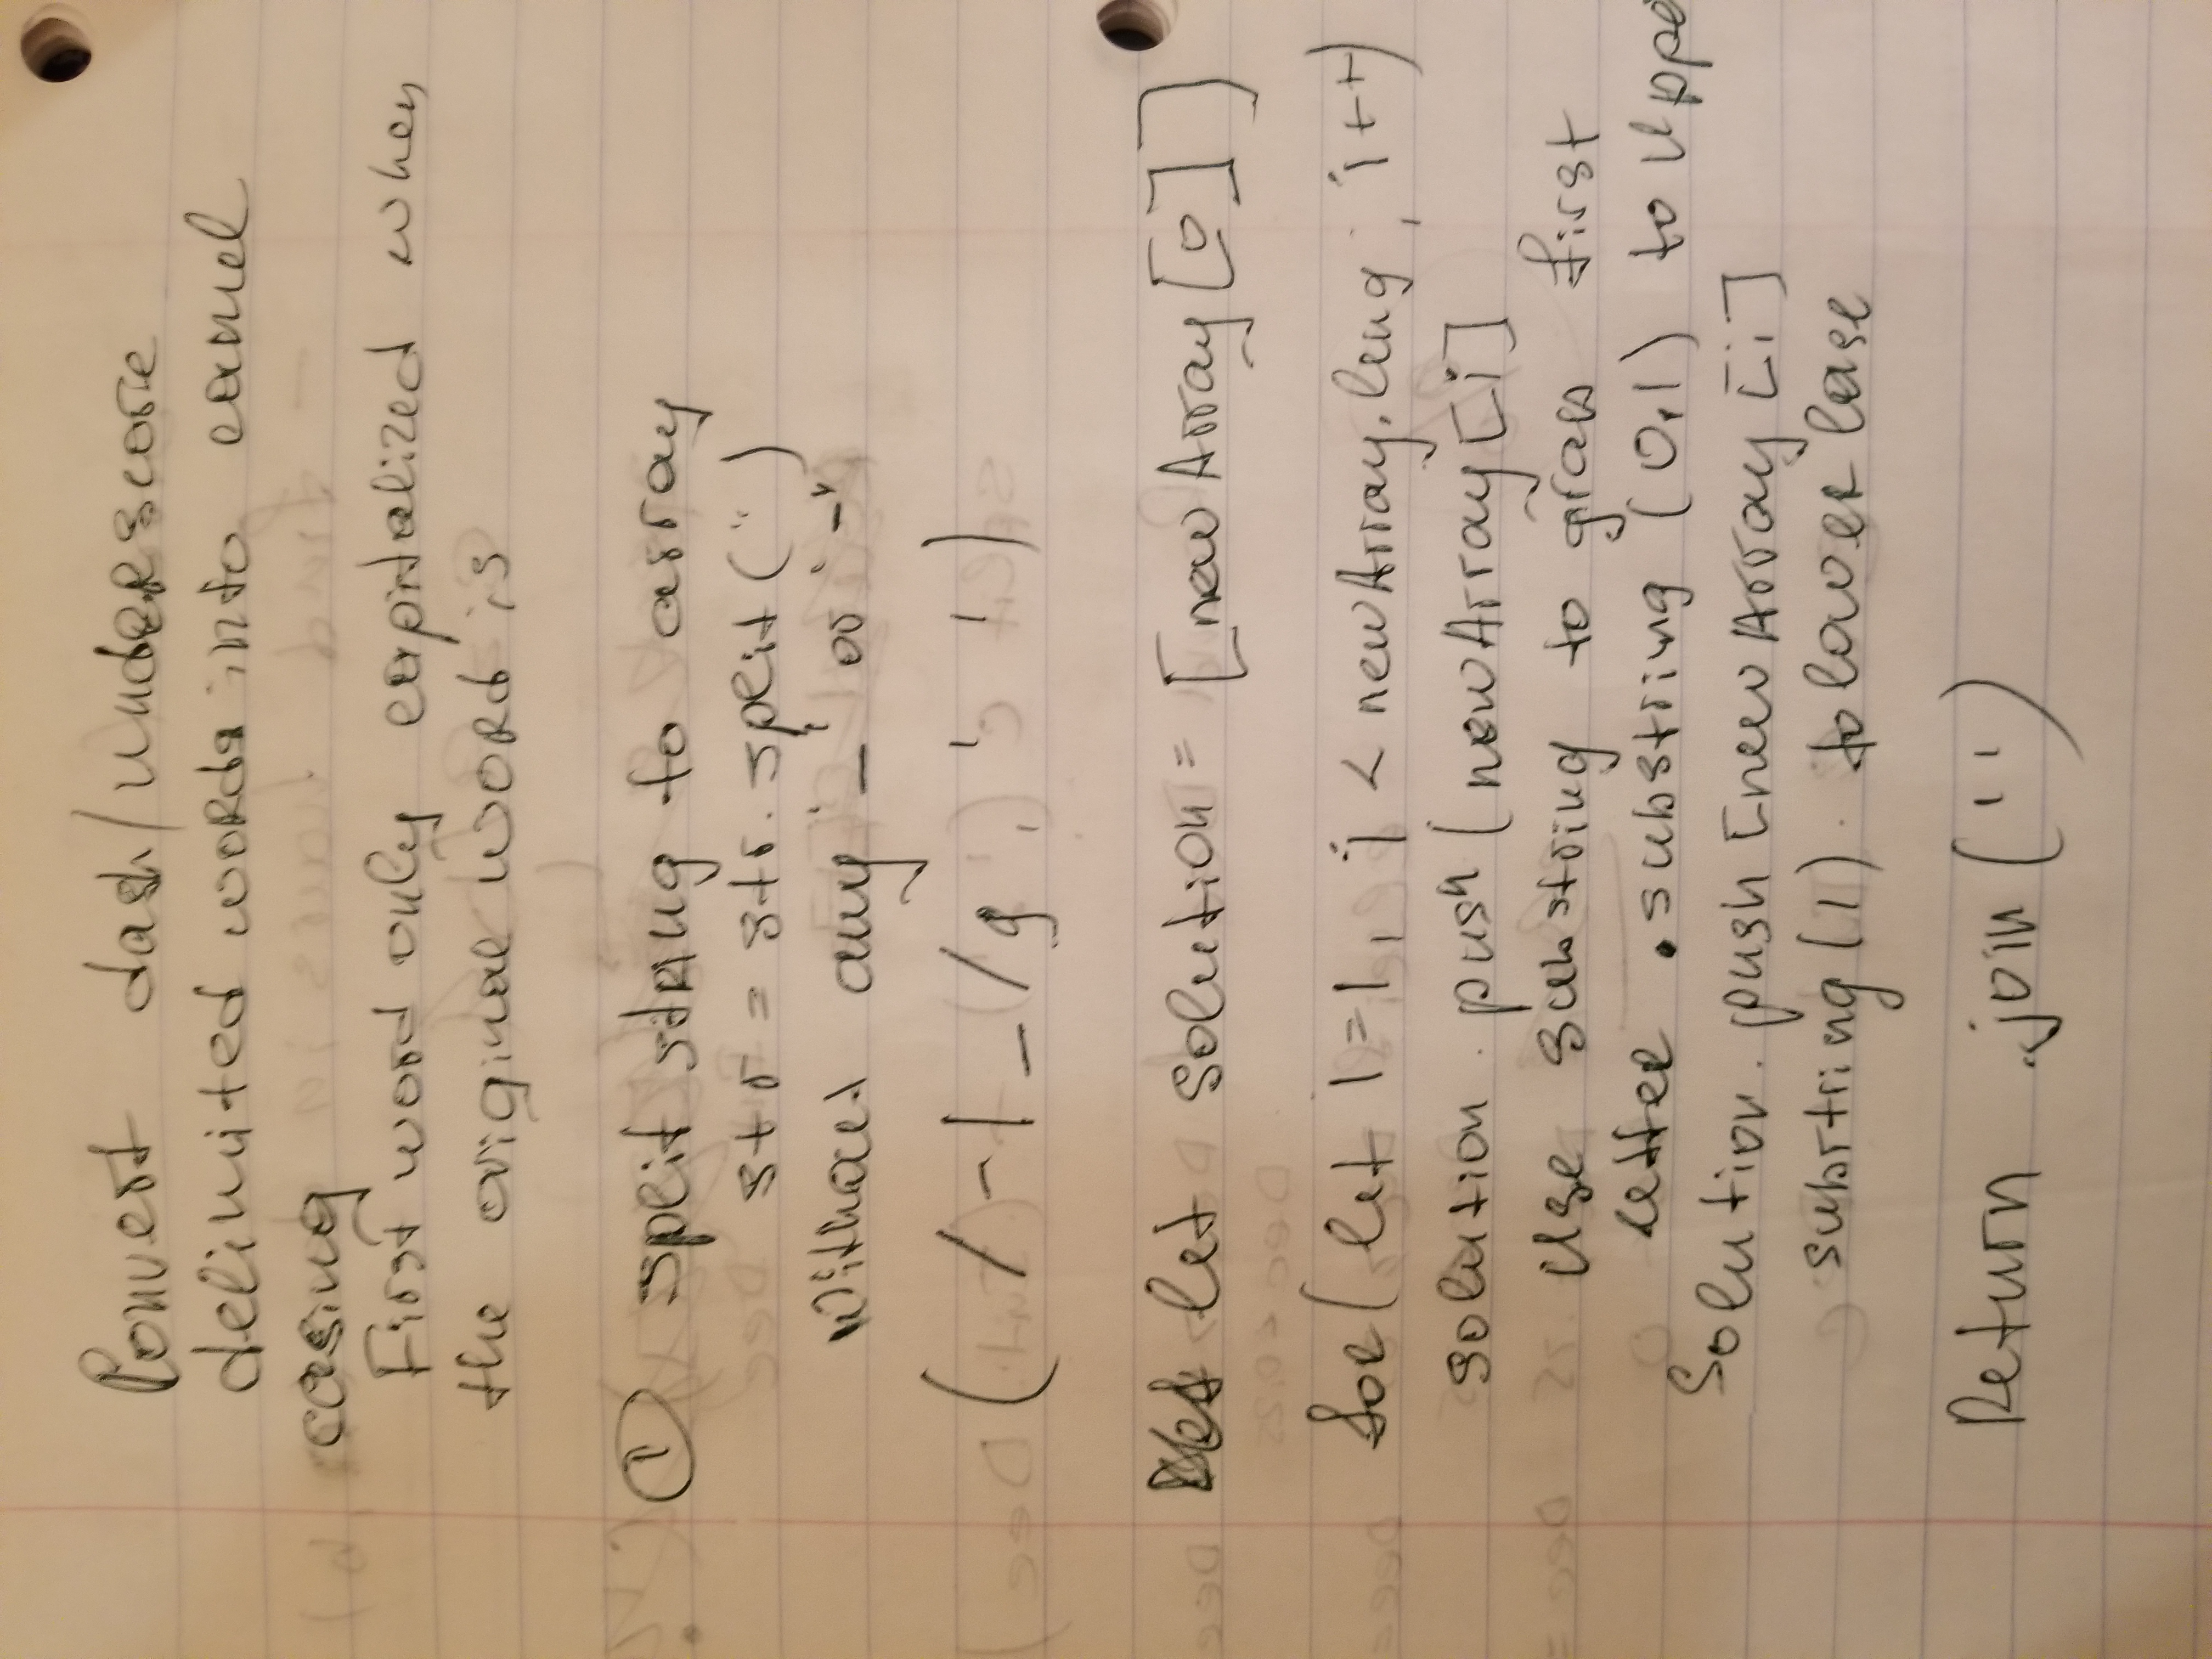 Convert dash/underscore
delimited words into camel
casing
First word only capitalized when
the original word is
① split string to array
str = str.split('')
without any '_' or '-'
( /-|_/g, ' ')
let solution = [newArray[0]]
for( let i=1, i < newArray.leng; i++)
solution.push(newArray[i]
Use substring to grab first
letter .substring (0,1) to Uppe
Solution.push [newArray[i]
substring(1). to lower Case
Return .join('')